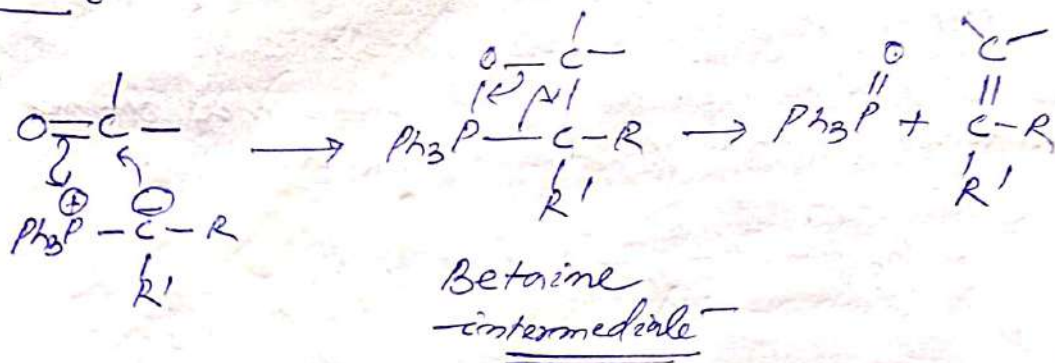 O=C
Ph3P⊕ – C⊖ – R
R'
⟶
O – C –
Ph3P – C – R
R'
⟶
Ph3P=O + C=C – R
R'
Betaine
intermediate